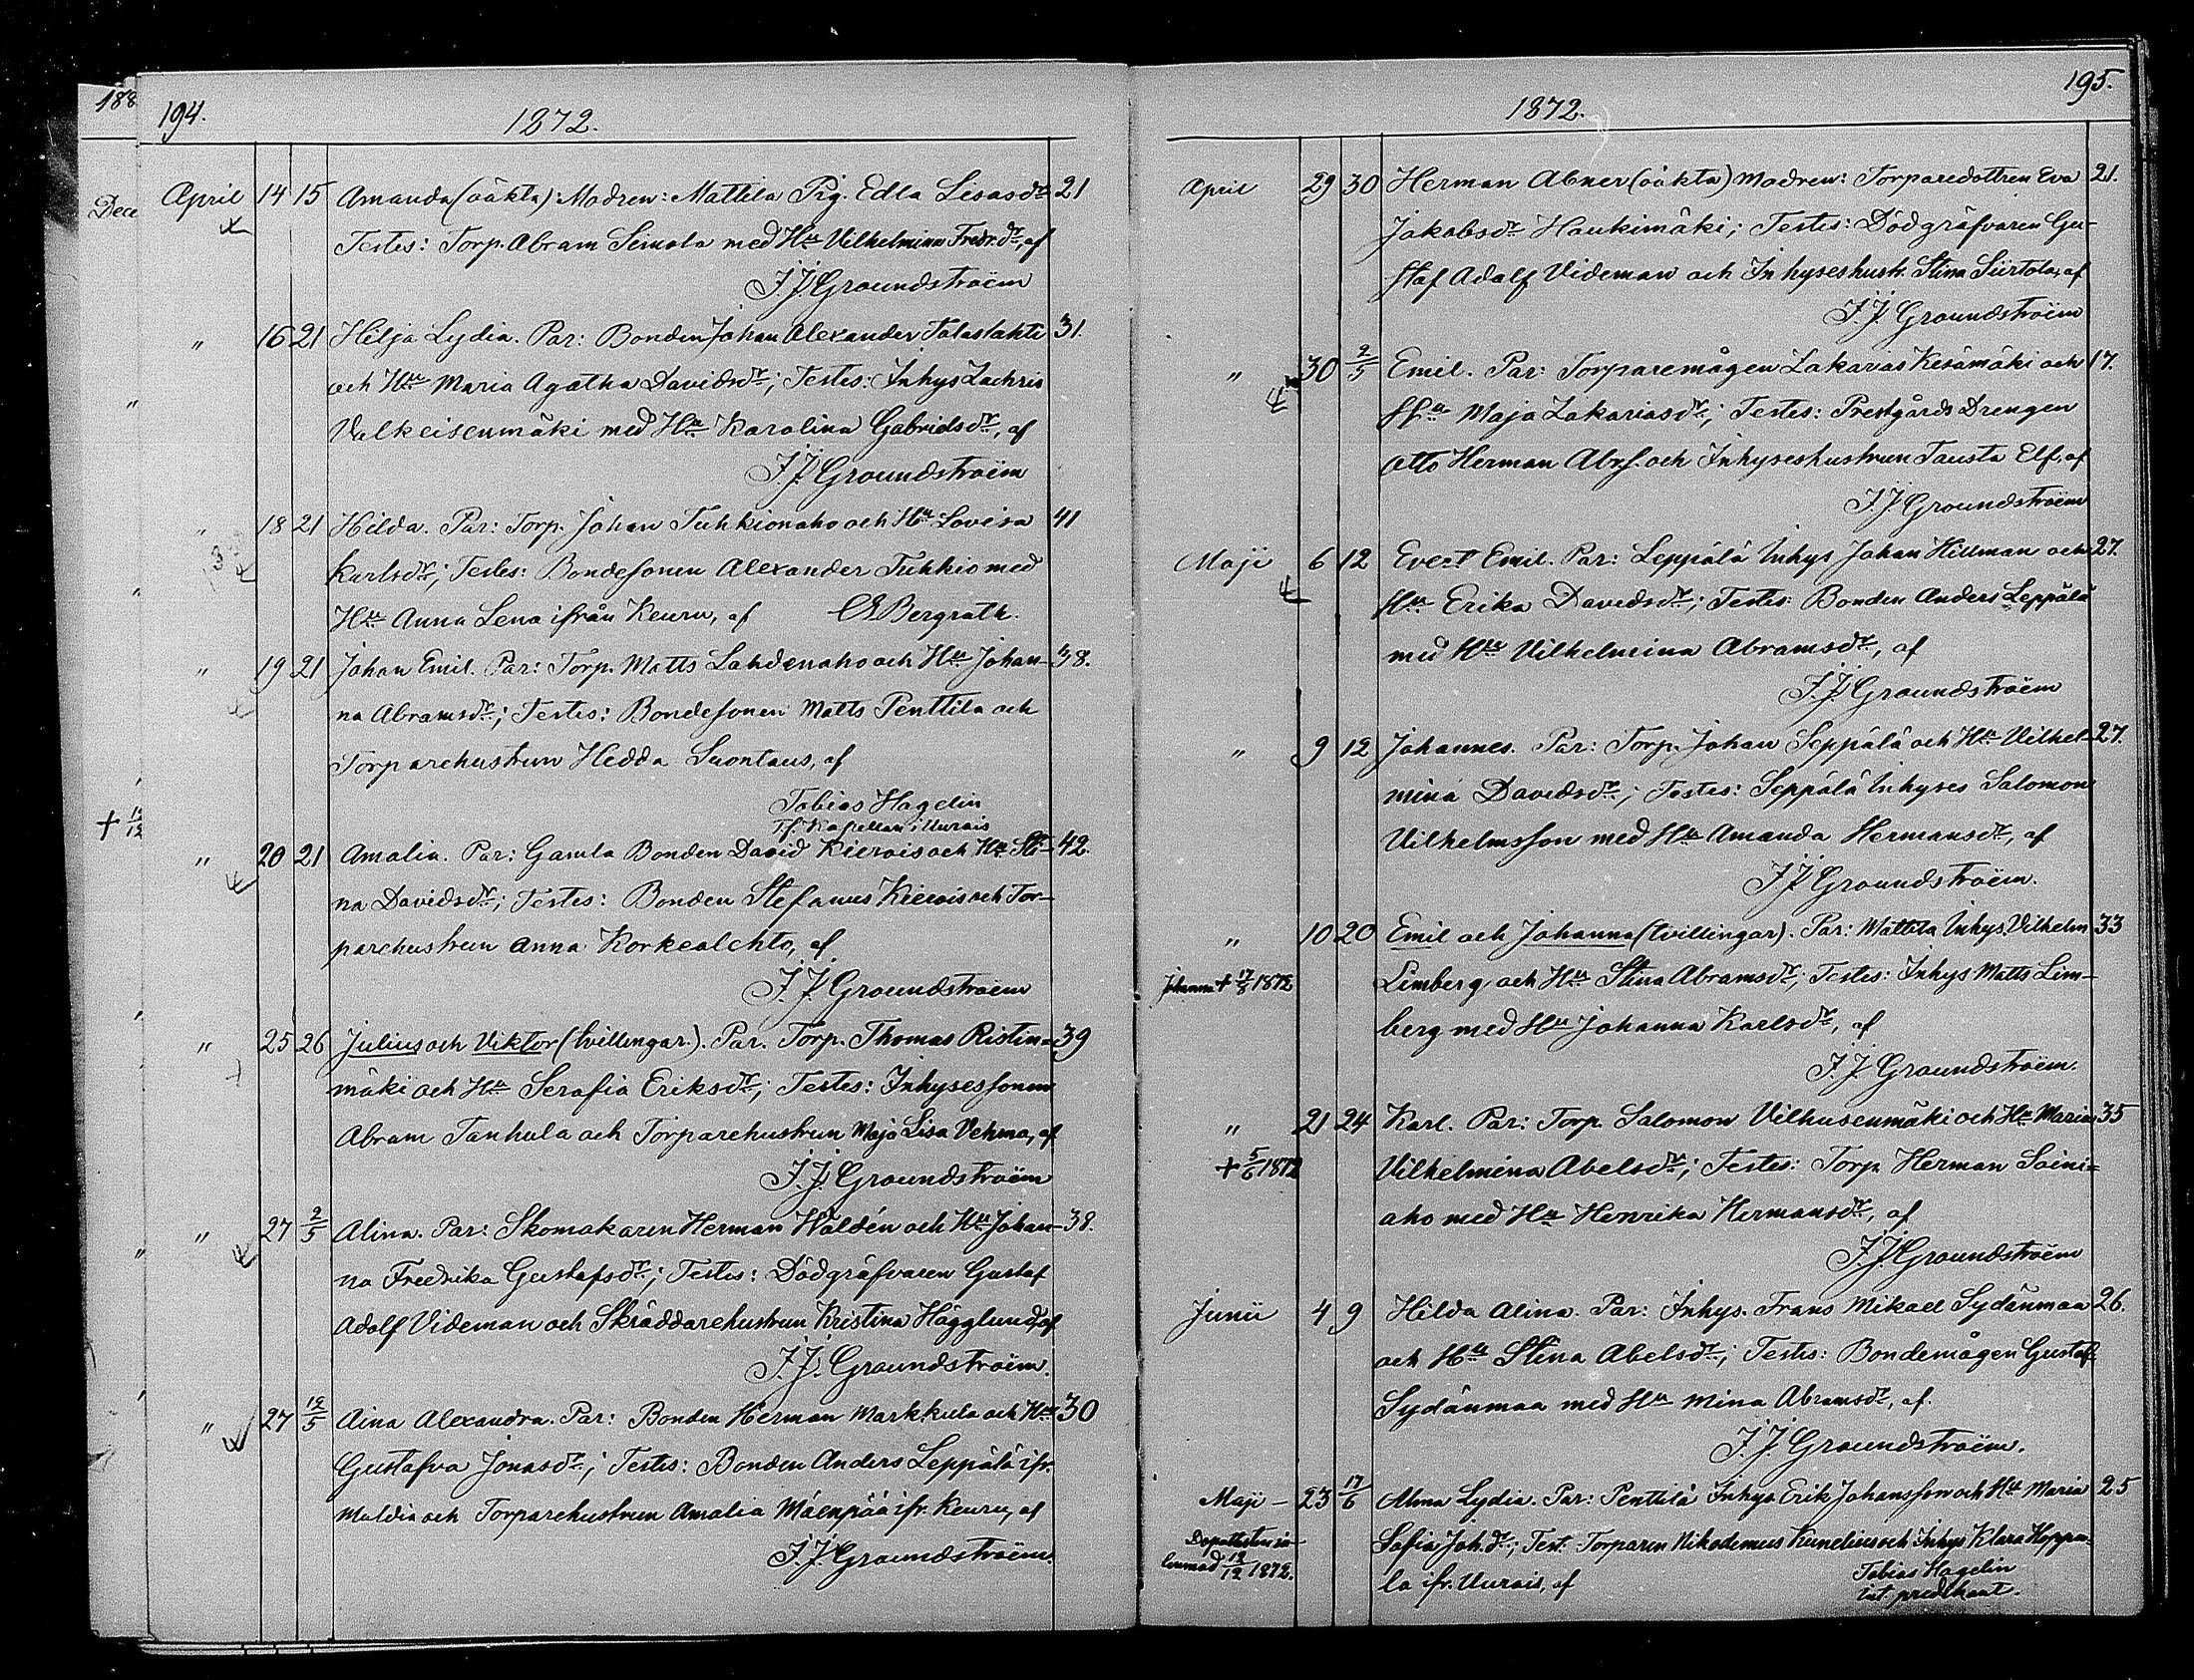 188
194.
1872.
Dece
April 14 15 Amanda (oäkta): Modren: Mattila Pig. Edla Lisasdr 21
Testes: Torp. Abram Seimola med Hu Vilhelmina Fredr.dr, af
J. J. Groundstroëm
" 16 21 Hilja Lydia. Par: Bonden Johan Alexander Talaslahti 31.
och Hu Maria Agatha Davidsdr; Testes: Inhys Zachris
Valkeisenmäki med Hu Karolina Gabrielsdr, af
J. J. Groundstroëm
" 18 21 Hilda. Par: Torp. Johan Tuhkionaho och Hu Lovisa 41
Karlsdr; Testes: Bondesonen Alexander Tuhkio med
Hu Anna Lena ifrån Keuru, af Bergroth.
" 19 21 Johan Emil. Par: Torp. Matts Lahdenaho och Hu Johan- 38.
na Abramsdr; Testes: Bondesonen Matts Penttila och
Torparehustrun Hedda Suontaus, af
Tobias Hagelin
T.f. Kapellan i Uurais
+ 12/12
" 20 21 Amalia. Par: Gamla Bonden David Kierois och Hu Sti- 42.
na Davidsdr; Testes: Bonden Stefanus Kierois och Tor-
parehustrun Anna Korkealehto, af
J. J. Groundstroëm
" 25 26 Julius och Viktor (tvillingar). Par. Torp. Thomas Ristin- 39
mäki och Hu Serafia Eriksdr; Testes: Inhysessonen
Abram Tanhula och Torparehustrun Maja Lisa Vehma, af
J. J. Groundstroëm
" 27 2/5 Alina. Par: Skomakaren Herman Waldén och Hu Johan- 38.
na Fredrika Gustafsdr; Testes: Dödgräfvaren Gustaf
Adolf Videman och Skräddarehustrun Kristina Hägglund, af
J. J. Groundstroëm.
" 27 12/5 Aina Alexandra. Par: Bonden Herman Markkula och Hu 30
Gustafva Jonasdr; Testes: Bonden Anders Leppälä ifr.
Multia och Torparehustrun Amalia Mäenpää ifr. Keuru, af
J. J. Groundstroëm.
195.
1872.
April 29 30 Herman Abner (oäkta) Modren: Torparedottren Eva 21.
Jakobsdr Haukimäki; Testes: Dödgräfvaren Gu-
staf Adolf Videman och Inhyseshustr. Stina Siirtola, af
J. J. Groundstroëm
" 30 2/5 Emil. Par: Torparemågen Zakarias Kesämäki och 17.
Hu Maja Zakariasdr; Testes: Prestgårds Drengen
Otto Herman Abrs. och Inhyseshustrun Fausta Elf, af
J. J. Groundstroëm
Maji 6 12 Evert Emil. Par: Leppälä Inhys Johan Hillman och 27.
Hu Erika Davidsdr; Testes: Bonden Anders Leppälä
med Hu Vilhelmina Abramsdr, af
J. J. Groundstroëm
" 9 12 Johannes. Par: Torp. Johan Seppälä och Hu Vilhel- 27.
mina Davidsdr; Testes: Seppälä Inhyses Salomon
Vilhelmsson med Hu Amanda Hermansdr, af
J. J. Groundstroëm.
" 10 20 Emil och Johanna (tvillingar). Par: Mattila Inhys. Vilhelm 33
Johanna + 17/8 1872
Limberg och Hu Stina Abramsdr; Testes: Inhys Matts Lim-
berg med Hu Johanna Karlsdr, af
J. J. Groundstroëm.
" 21 24 Karl. Par: Torp. Salomon Vilhusenmäki och Hu Maria 35
+ 5/6 1872
Vilhelmina Abelsdr; Testes: Torp Herman Saini-
aho med Hu Henrika Hermansdr, af
J. J. Groundstroëm
Junii 4 9 Hilda Alina. Par: Inhys. Frans Mikael Sydänmaa 26.
och Hu Stina Abelsdr; Testes: Bondemågen Gustaf
Sydänmaa med Hu Mina Abramsdr, af.
J. J. Groundstroëm.
Maji - 23 17/6 Alma Lydia. Par: Penttilä Inhys Erik Johansson och Hu Maria 25
Dopattesten in-
lemnad 12/12 1872.
Sofia Joh.dr; Test. Torparen Nikodemus Kunelius och Inhys Klara Hoppa-
la ifr. Uurais, af
Tobias Hagelin
int. predikant.